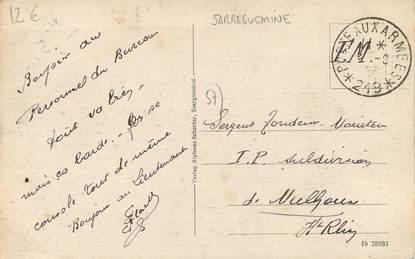 12€
SARREGUEMINE
Bonjour au
Personnel du Bureau
tout va très
mais ça barde. - On se
console tout de même
Bonjour au Lieutenant
Verlag Alphons Schorter, Saargemünd.
57
F.M
*POSTE AUX ARMEES*
218
Sergent
I.P. subdivision
de Mulhouse
Ht Rhin
10 28983